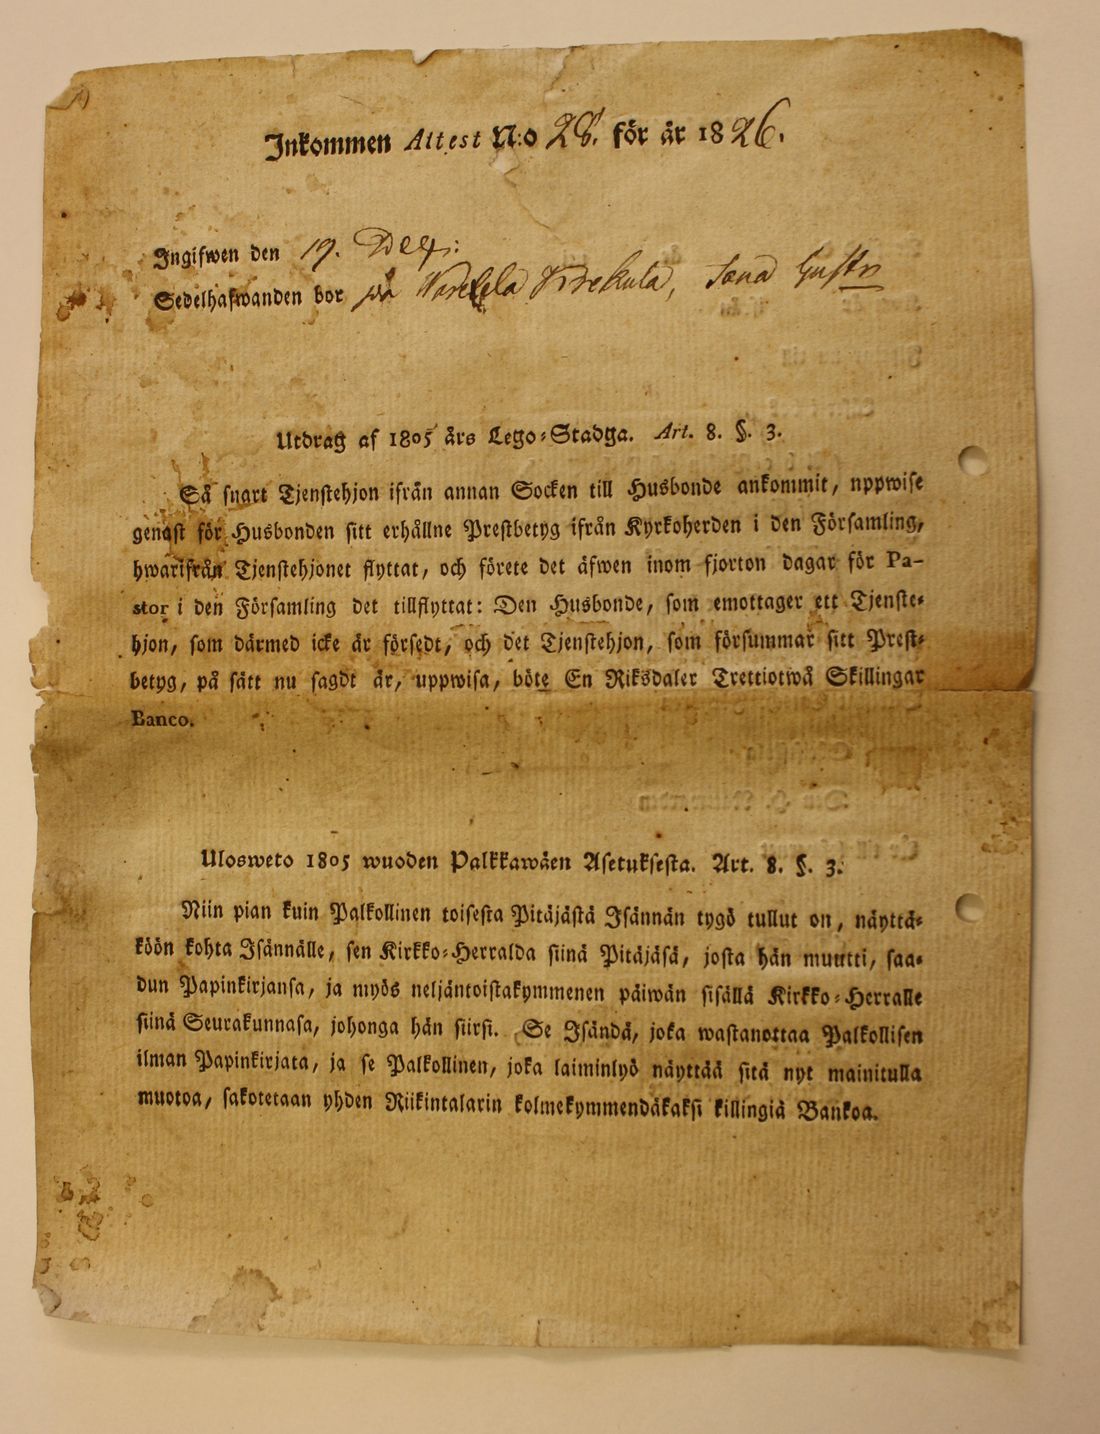 Inkommen Attest N:o 28. för år 1826.
Ingifwen den 19. Dec:
Sedelhafwanden bor på
Utdrag af 1805 års Lego-Stadga. Art. 8. §. 3.
Så snart Tjenstehjon ifrån annan Socken till Husbonde ankommit, nppwise
genast för Husbonden sitt erhållne Prestbetyg ifrån Kyrkoherden i den Församling,
hwarifrån Tjenstehjonet flyttat, och förete det äfwen inom fjorton dagar för Pa-
stor i den Församling det tillflyttat: Den Husbonde, som emottager ett Tjenste-
hjon, som därmed icke är försedt, och det Tjenstehjon, som försummar sitt Prest-
betyg, på sätt nu sagdt är, uppwisa, böte En Riksdaler Trettiotwå Skillingar
Banco.
Ulosweto 1805 wuoden Palkkawäen Asetuksesta. Art. 8. §. 3.
Niin pian kuin Palkollinen toisesta Pitäjästä Isännän tygö tullut on, näyttä-
köön kohta Isännälle, sen Kirkko-Herralda siinä Pitäjäsä, josta hän muutti, saa-
dun Papinkirjansa, ja myös neljäntoistakymmenen päiwän sisällä Kirkko-Herralle
siinä Seurakunnasa, johonga hän siirsi. Se Isändä, joka wastanottaa Palkollisen
ilman Papinkirjata, ja se Palkollinen, joka laiminlyö näyttää sitä nyt mainitulla
muotoa, sakotetaan yhden Riikintalarin kolmekymmendäkaksi killingiä Bankoa.